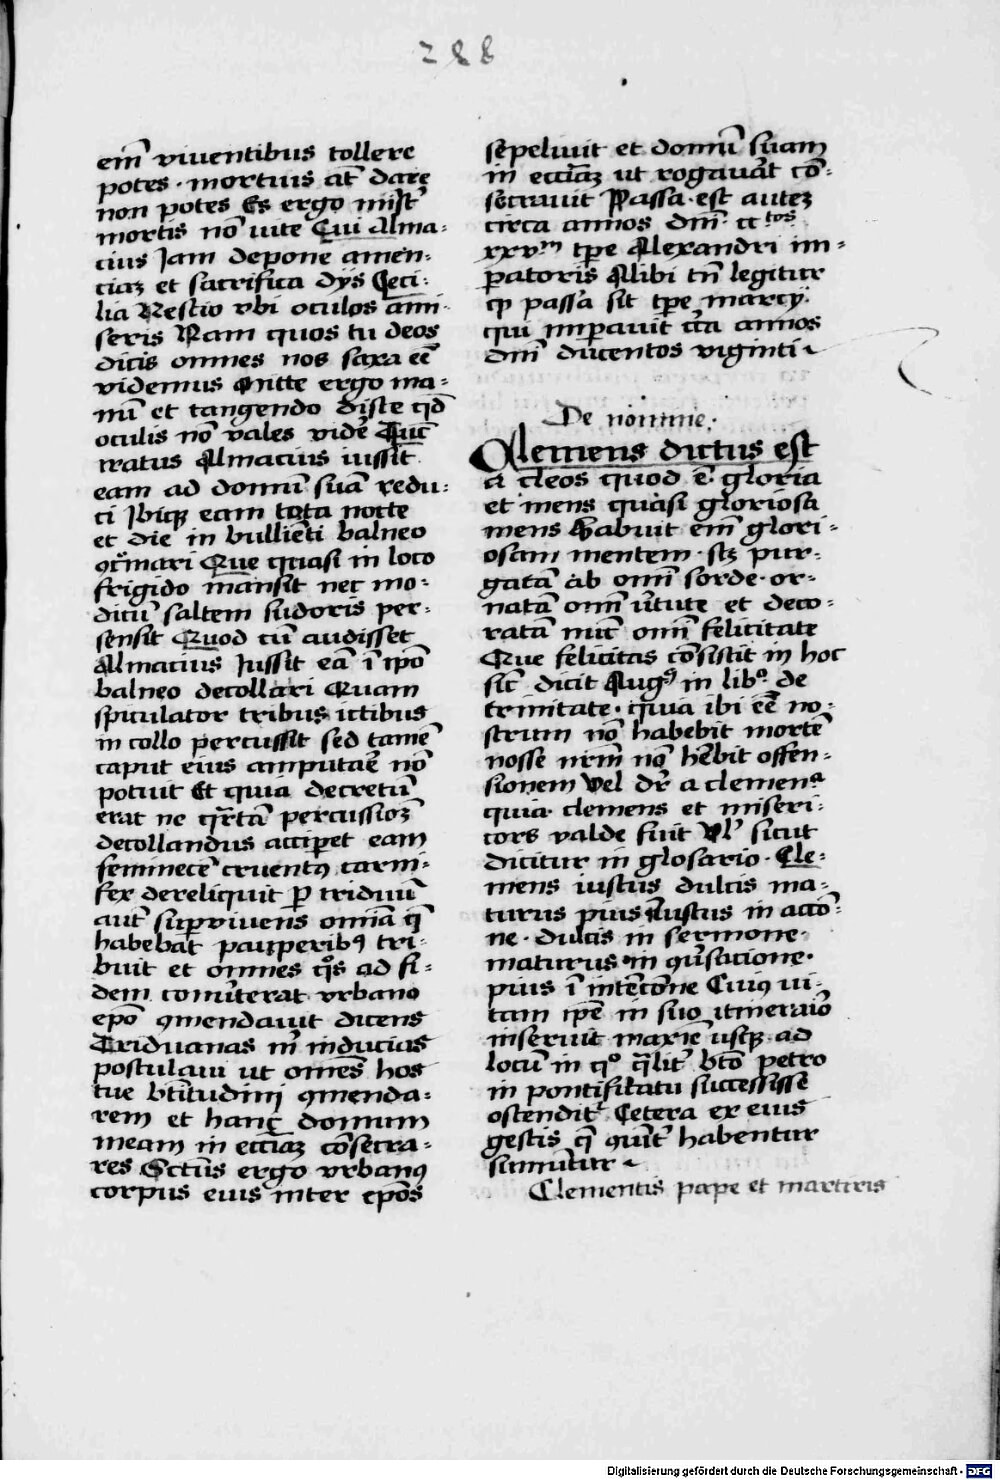 288
em̄ viventibus tollere
potes · mortuis at̄ dare
non potes Es ergo mīst̄
mortis nō vite Cui Alma-
cius Jam depone amen-
ciaz et sacrifica dijs Ceci-
lia Nescio vbi oculos ami-
seris Nam quos tu deos
dicis omnes nos saxa eē
videmus Mitte ergo ma-
nū et tangendo disce qd̄
oculis nō vales videre Tūc
iratus Almacius iussit
eam ad domū suā redu-
ci Ibiqz eam tota nocte
et die in bulliēti balneo
ꝯcremari Que quasi in loco
frigido mansit nec mo-
dicū saltem sudoris per-
sensit Quod cū audisset
Almacius Jussit eā ī ip̄o
balneo decollari Quam
spiculator tribus ictibus
in collo percussit sed tamē
caput eius amputare nō
potuit Et quia decretū
erat ne qrtā percussioēz
decollandus acciperet eam
seminecē cruentus carni-
fex dereliquit ꝑ triduū
aut̄ supervivens omnia q̄
habebat pauperibꝰ tri-
buit et omnes qos ad fi-
dem comūterat vrbano
ep̄o ꝯmendavit dicens
Triduanas m̄ inducias
postulavi ut omēs hos
tue btītudini ꝯmenda-
rem et hanc domum
meam in ecciāz cōsecra-
res Sctūs ergo vrbanꝰ
corpus eius inter ep̄os
sepelivit et domū suam
in ecciāz ut rogavāt cō-
secravit Passa est autez
circa annos dnī cctos
xxvm tp̄e Alexandri im-
peratoris Alibi tn̄ legitur
ꝙ passa sit tp̄e marcij
qui imperavit circa annos
dnī ducentos viginti
De nomine
Clemens dictus est
a cleos quod ē gloria
et mens quasi gloriosa
mens Habuit em̄ glori-
osam mentem · scz pur-
gatā ab omī sorde · or-
natā omī v̄tute et deco-
ratā nūc omī felicitate
Que felicitas cōsistit in hoc
sic̄ dicit Augꝰ in libo de
trinitate · quia ibi eē no-
strum nō habebit mortē
nosse nrm̄ nō hēbit offen-
sionem Vel dr̄ a clemena
quia clemens et miseri-
cors valde fuit Vl̄ sicut
dicitur in glosario · Cle-
mens iustus dulcis ma-
turus pius Iustus in accō-
ne · dulcis in sermone ·
maturus in ꝯv̄sacione ·
pius ī intēcōne Cuiꝰ vi-
tam ip̄e in suo itinerario
inseruit maxīe usqz ad
locū in qo qlit̄ bt̄o petro
in pontificatu successisse
ostendit̄ Cetera ex eius
gestis q̄ habentur
sumūtur
Clementis pape et martiris
Digitalisierung gefördert durch die Deutsche Forschungsgemeinschaft - DFG